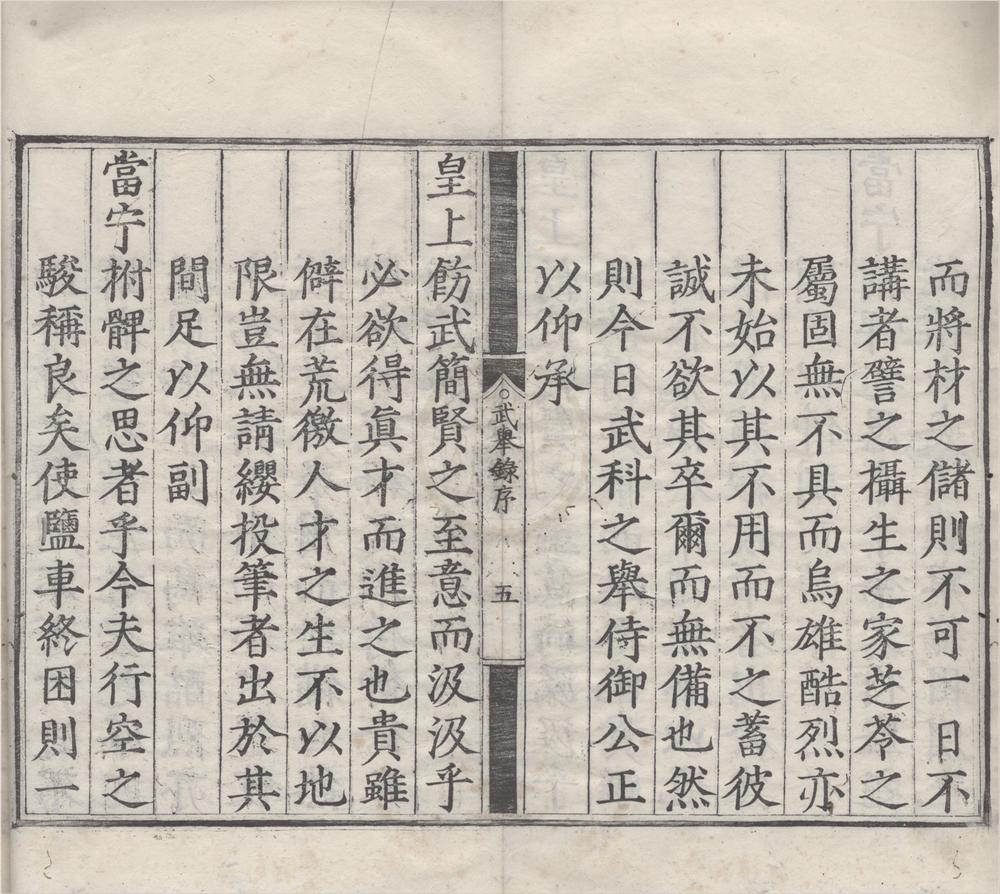 而將材之儲則不可一日不
講者譬之攝生之家芝苓之
屬固無不具而烏雄酷烈亦
未始以其不用而不之蓄彼
誠不欲其卒爾而無備也然
則今日武科之舉侍御公正
以仰承
武舉錄序
五
皇上飭武簡賢之至意而汲汲乎
必欲得眞才而進之也貴雖
僻在荒徼人才之生不以地
限豈無請纓投筆者出於其
間足以仰副
當宁拊髀之思者乎今夫行空之
駿稱良矣使鹽車終困則一